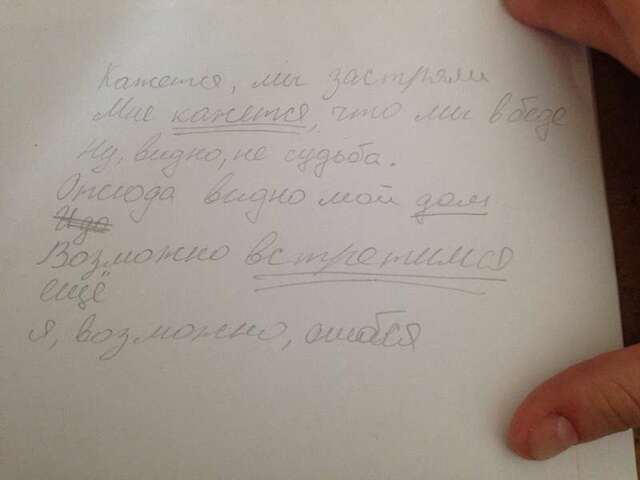 Кажется, мы застряли
Мне кажется, что мы в беде
Ну, видно, не судьба.
Отсюда видно мой дом
Возможно встретимся
ещё
я, возможно, ошибся